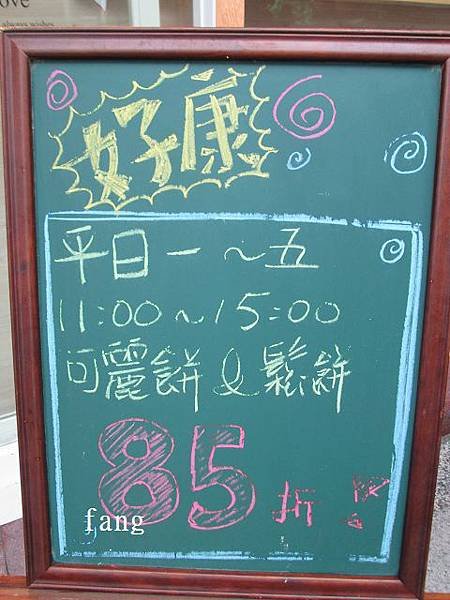 好康
平日一～五
11:00～15:00
可麗餅&鬆餅
85折
fang